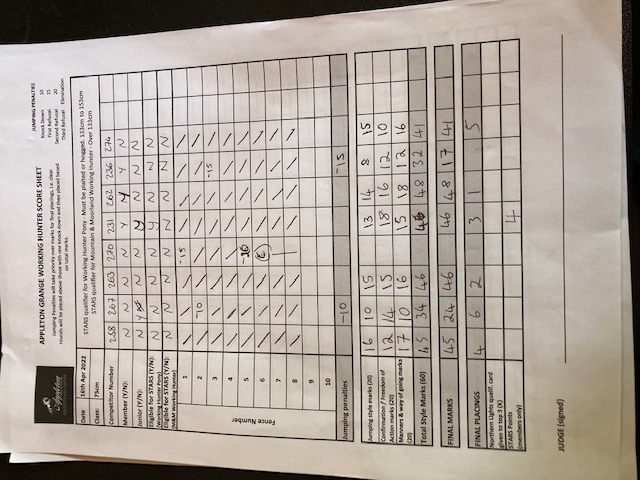 APPLETON GRANGE WORKING HUNTER SCORE SHEET
Jumping Penalties will take priority over marks for final placings, i.e. clear
rounds will be placed above those with one knock down and then placed based
on total marks.
JUMPING PENALTIES
Knock Down 10
First Refusal 15
Second Refusal 20
Third Refusal Elimination
Date 16th Apr 2022 STARS qualifier for Working Hunter Pony - Must be plaited or hogged. 133cm to 153cm
Class: 75cm STARS qualifier for Mountain & Moorland Working Hunter - Over 133cm
Competitor Number 267 263 270 231 262 236 274
Member (Y/N): N N N N Y Y Y N
Junior (Y/N): N N N
Eligible for STARS (Y/N):
(Working Hunter Pony) N N N N
Eligible for STARS (Y/N):
(M&M Working Hunter) N N N N
Fence Number
1 / / / -15 / / / /
2 / -10 / / / / / /
3 / / / / / / -15 /
4 / / / / / / / /
5 / / / -20 / / / /
6 / / / E / / / /
7 / / / / / / /
8 / / / / / / /
9
10
Jumping penalties -10 -15
Jumping style marks (20) 16 10 15 13 14 8 15
Confirmation / Freedom of
Action marks (20) 12 14 15 18 16 12 10
Manners & way of going marks
(20) 17 10 16 15 18 12 16
Total Style Marks (60) 45 34 46 46 48 32 41
FINAL MARKS 45 24 46 46 48 17 41
FINAL PLACINGS 4 6 2 3 5
Northern Lights qualif. card
given to top 3 (X)
STARS Points
(members only) 4
JUDGE (signed)